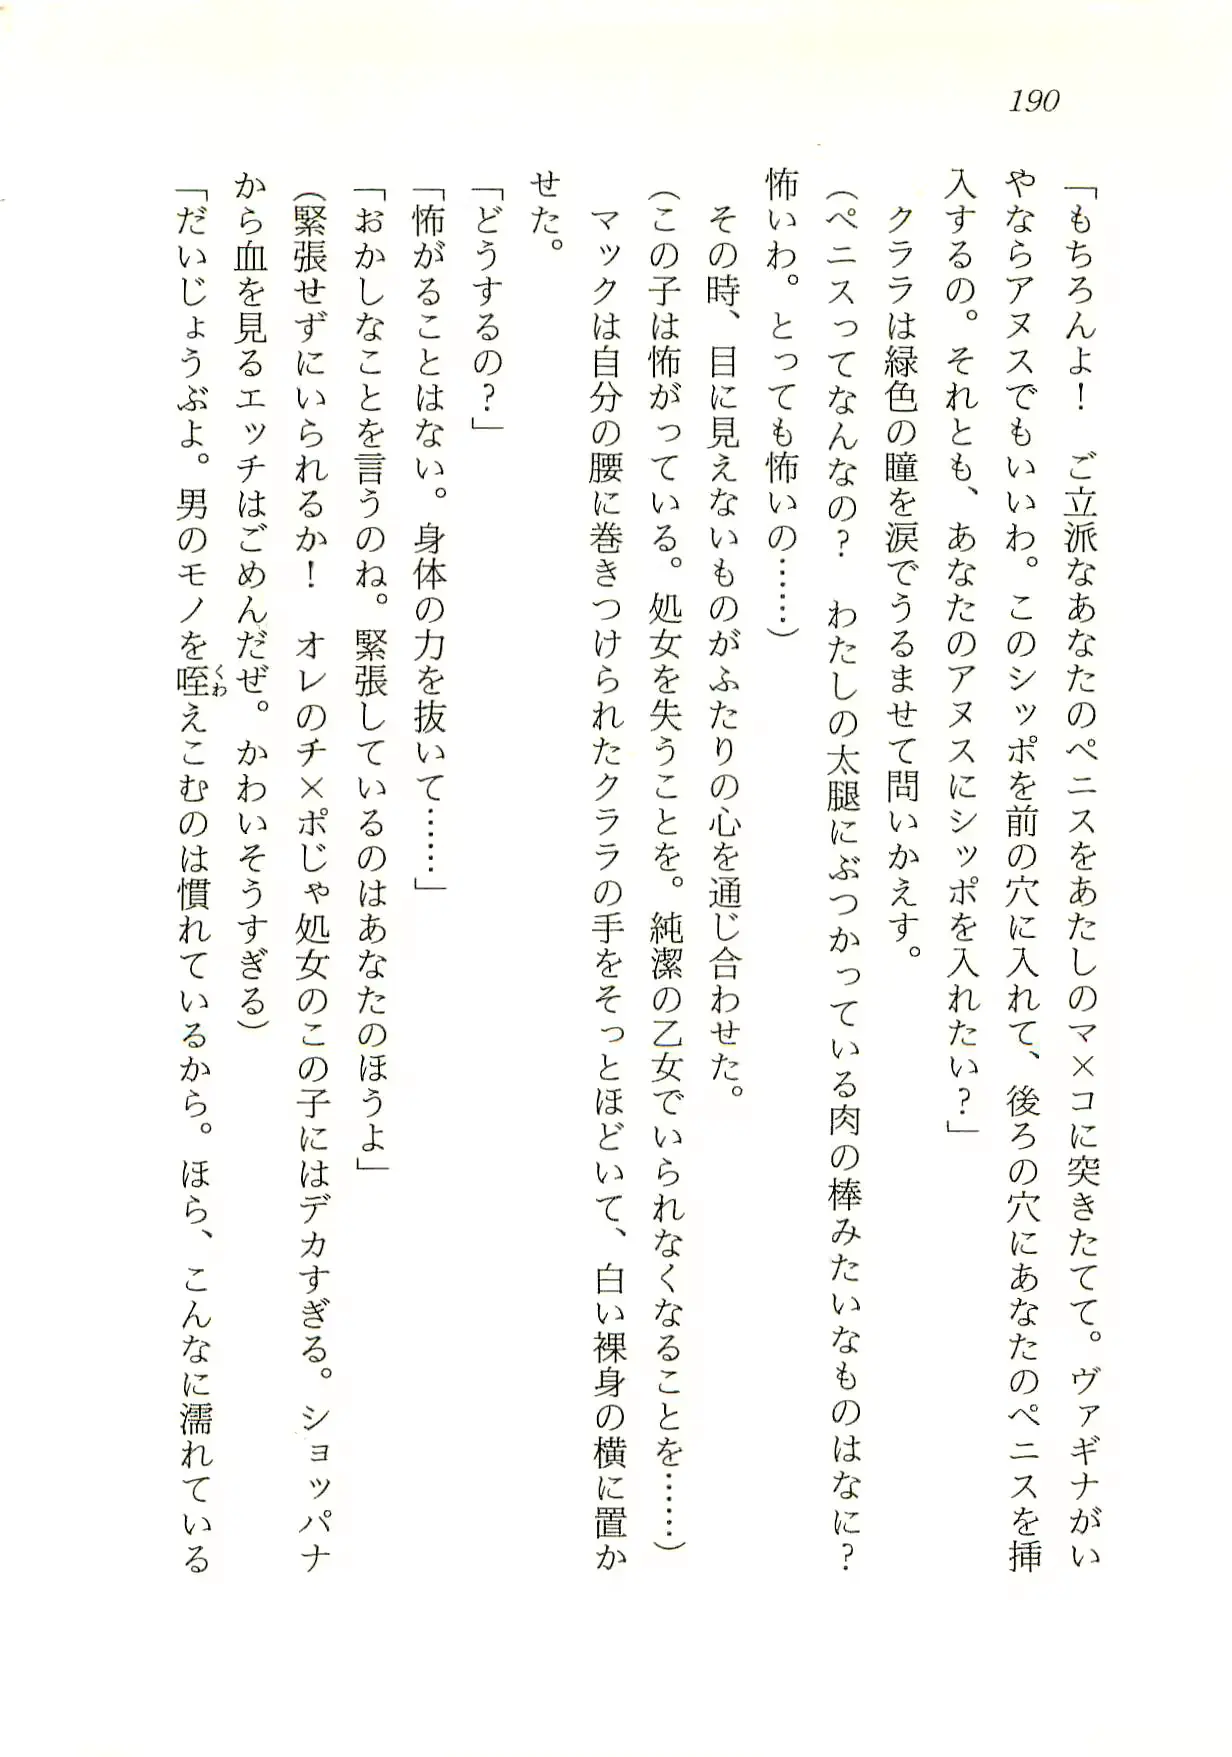 190
「もちろんよ！　ご立派なあなたのペニスをあたしのマ×コに突きたてて。ヴァギナがい
やならアヌスでもいいわ。このシッポを前の穴に入れて、後ろの穴にあなたのペニスを挿
入するの。それとも、あなたのアヌスにシッポを入れたい？」
　クララは緑色の瞳を涙でうるませて問いかえす。
（ペニスってなんなの？　わたしの太腿にぶつかっている肉の棒みたいなものはなに？
怖いわ。とっても怖いの……）
　その時、目に見えないものがふたりの心を通じ合わせた。
（この子は怖がっている。処女を失うことを。純潔の乙女でいられなくなることを……）
　マックは自分の腰に巻きつけられたクララの手をそっとほどいて、白い裸身の横に置か
せた。
「どうするの？」
「怖がることはない。身体の力を抜いて……」
「おかしなことを言うのね。緊張しているのはあなたのほうよ」
（緊張せずにいられるか！　オレのチ×ポじゃ処女のこの子にはデカすぎる。ショッパナ
から血を見るエッチはごめんだぜ。かわいそうすぎる）
「だいじょうぶよ。男のモノを咥くわえこむのは慣れているから。ほら、こんなに濡れている